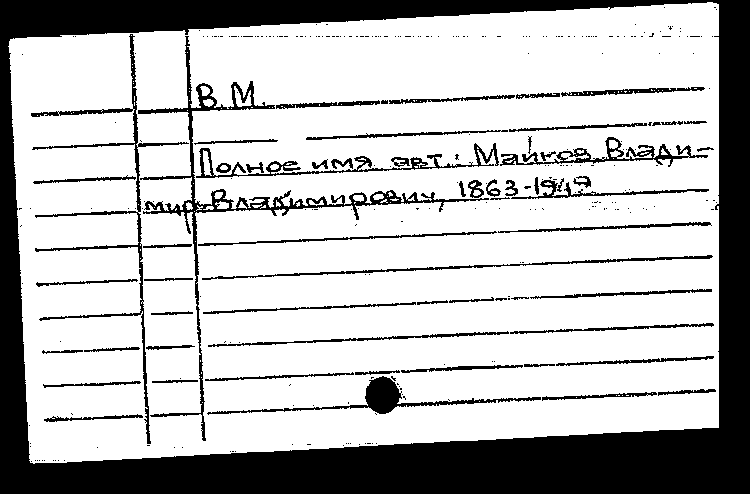 В. М.
Полное имя авт.: Майков, Влади-
мир Владимирович, 1863-1949